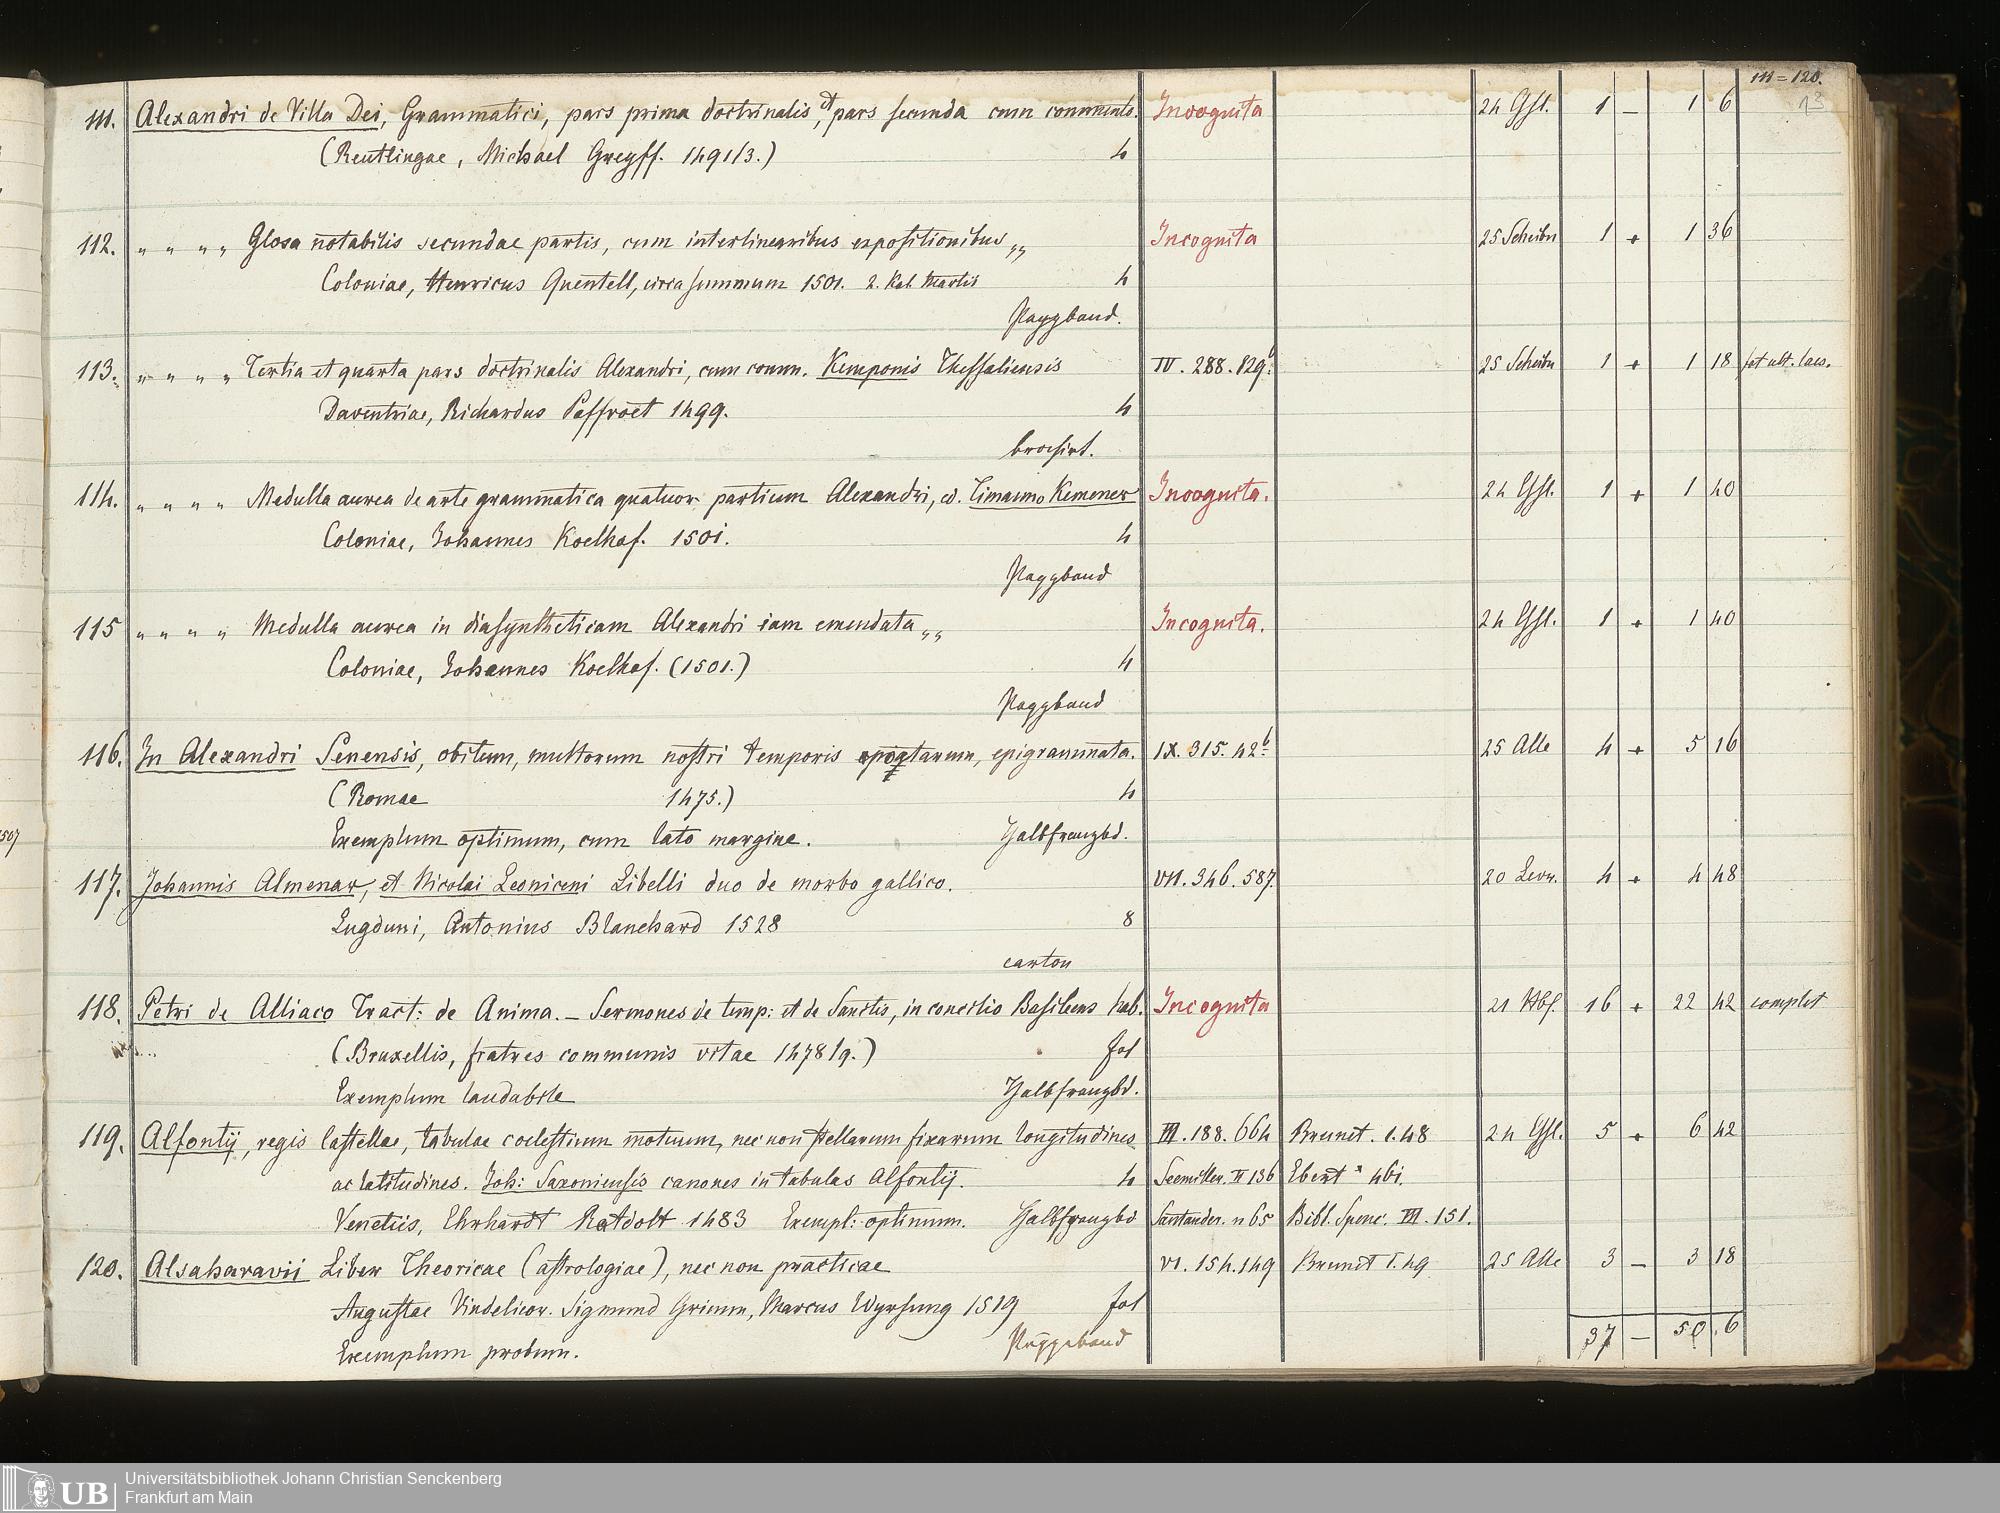 111 = 120.
13
111. Alexandri de Villa Dei, Grammatici, pars prima doctrinalis, et pars secunda cum commento. Incognita 24 Gfl. 1 — 1 6
(Reutlingae, Michael Greyff. 1491/3.) 4
112. „ „ „ „ Glosa notabilis secundae partis, cum interlinearibus expositionibus „„ Incognita 25 Scheibn 1 + 1 36
Coloniae, Henricus Quentell, circa summum 1501. 2. Kal. Martis 4
Pappband.
113. „ „ „ „ Tertia et quarta pars doctrinalis Alexandri, cum comm. Kemponis Thessaliensis IV. 288. 829. 25 Scheibn 1 + 1 18 fol ult. laes.
Daventriae, Richardus Paffroet 1499. 4
brochirt.
114. „ „ „ „ Medulla aurea de arte grammatica quatuor partium Alexandri, ed. Timanno Kemener Incognita. 24 Gfl. 1 + 1 40
Coloniae, Johannes Koelhof. 1501. 4
Pappband
115 „ „ „ „ Medulla aurea in diasyntheticam Alexandri iam emendata „„ Incognita. 24 Gfl. 1 + 1 40
Coloniae, Johannes Koelhof. (1501.) 4
Pappband
116. In Alexandri Senensis, obitum, multorum nostri temporis poetarum, epigrammata. IX. 315. 42b 25 Alle 4 + 5 16
(Romae 1475.) 4
Exemplum optimum, cum lato margine. Halbfranzbd.
117. Johannis Almenar, et Nicolai Leoniceni Libelli duo de morbo gallico. VII. 346. 587. 20 Levr. 4 + 4 48
Lugduni, Antonius Blanchard 1528 8
carton
118. Petri de Alliaco Tract: de Anima. — Sermones de temp: et de Sanctis, in concilio Basileens hab. Incognita 21 16 + 22 42 complet
(Bruxellis, fratres communis vitae 1478/9.) fol
Exemplum laudabile Halbfranzbd.
119. Alfontij, regis Castellae, tabulae coelestium motuum, nec non stellarum fixarum longitudines III. 188. 664 Brunet. 1. 48 24 Gfl. 5 + 6 42
ac latitudines. Joh: Saxoniensis canones in tabulas Alfontij. 4 Seemiller. II 136 Ebert * 461.
Venetiis, Ehrhardt Ratdolt 1483 Exempl: optimum. Halbfranzbd Santander. n 65 Bibl. Spenc. VII. 151.
120. Alsaharavii Liber Theoricae (astrologiae), nec non practicae VI. 154. 149 Brunet I. 49 25 Alle 3 — 3 18
Augustae Vindelicor. Sigmund Grimm, Marcus Wyrsung 1519 fol
37 — 50. 6
Exemplum probum. Pappeband
1507
UB
Universitätsbibliothek Johann Christian Senckenberg
Frankfurt am Main